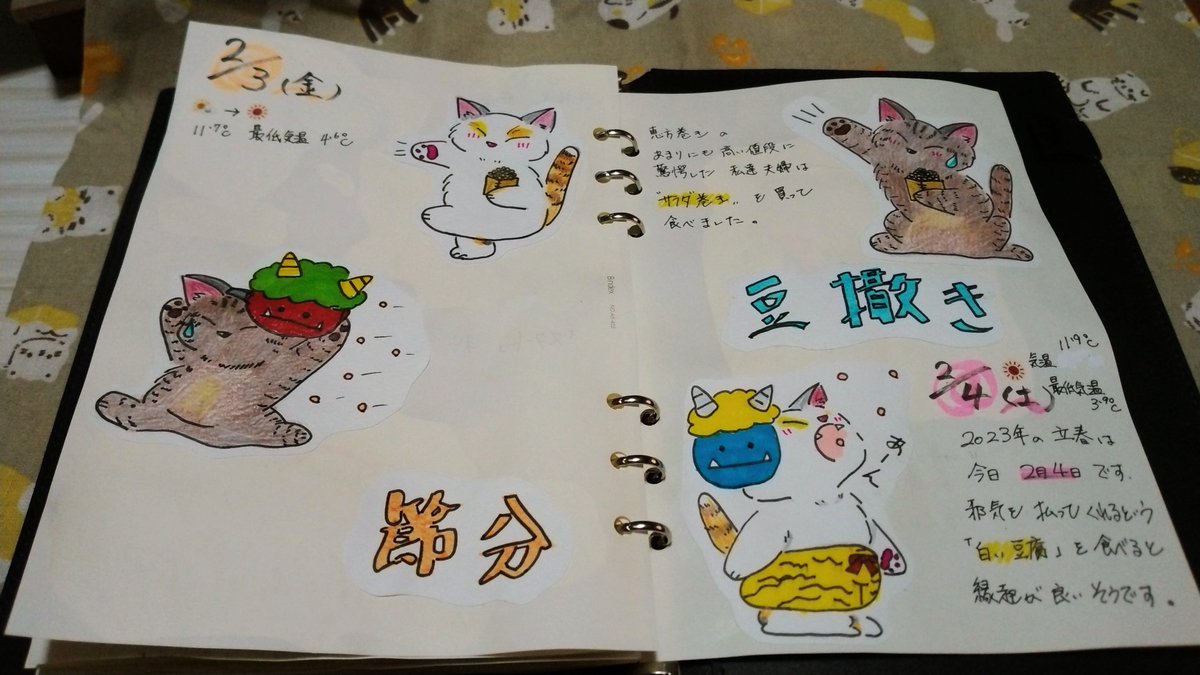 2/3(金)
→
11.7℃ 最低気温 4.6℃
節分
Bindex
恵方巻きの
あまりにも高い値段に
驚愕した 私達夫婦は
"サラダ巻き" を買って
食べました。
豆撒き
あーん
2/4(土)
気温 11.9℃
最低気温
3.9℃
2023年の立春は
今日 2月4日です.
邪気を払ってくれるという
「白い豆腐」を食べると
縁起が良いそうです。